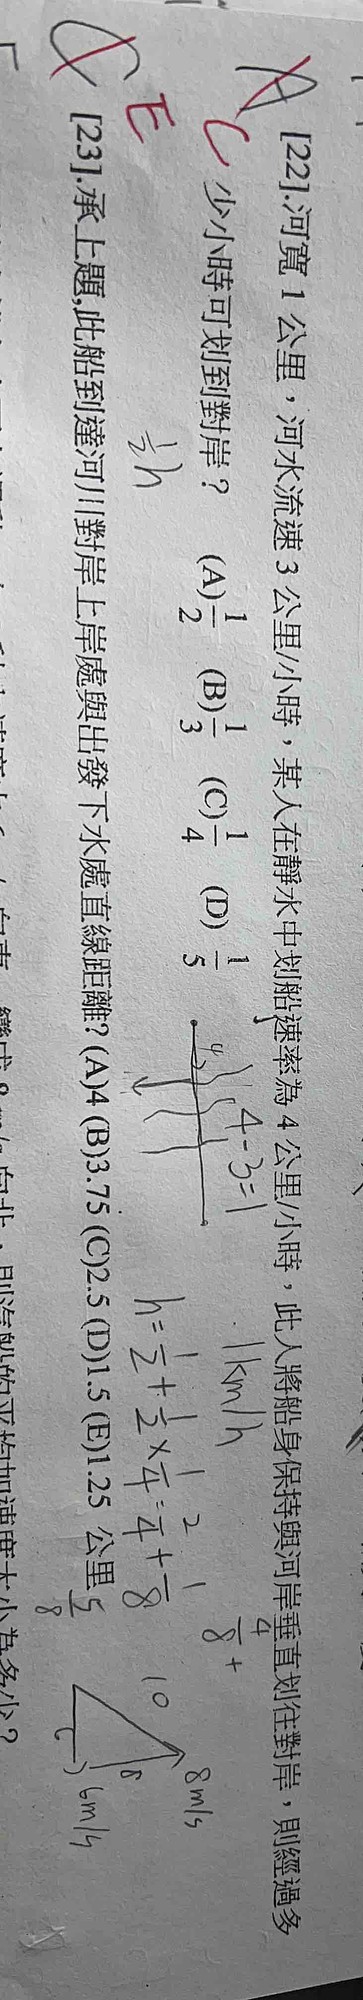 A
[22].河寬 1 公里，河水流速 3 公里/小時，某人在靜水中划船速率為 4 公里/小時，此人將船身保持與河岸垂直划往對岸，則經過多
C 少小時可划到對岸？ (A)1/2 (B)1/3 (C)1/4 (D)1/5
4-3=1
1km/h
4/8+
1/2h
h=1/2+1/2×1/4=2/4+1/8
5/8
E
[23].承上題,此船到達河川對岸上岸處與出發下水處直線距離? (A)4 (B)3.75 (C)2.5 (D)1.5 (E)1.25 公里
10
8
8m/s
6m/s